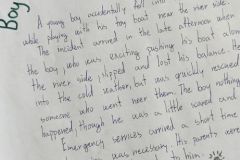 Boy
A young boy accidentally fall into
while playing with his toy boat near the river side.
The incident arrived in the late afternoon when
the boy, who was exciting pushing his boat along
the river side, slipped and lost his balance. He
into the cold weather, but was quickly rescued
someone who went near them. The boy nothing
happened, though he was a little scared and
Emergency services arrived a short time
was necessary. His parents were
him